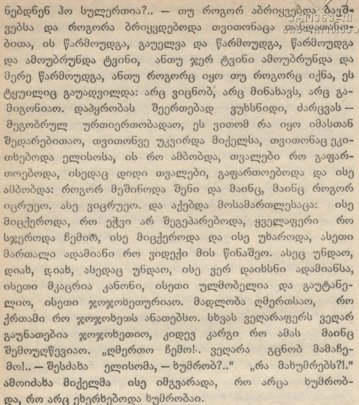 ნებდნენ ჰო სულერთია?.. — თუ როგორ აბრიყვებდა ბავშ-
ვებსა და როგორა ბრიყვდებოდა თვითონაცა
ბითა, ის წარმოუდგა, გაუელვა და წარმოუდგა, წარმოუდგა
და ამოუბრუნდა ტვინი, ანთუ ჯერ ტვინი ამოუბრუნდა და
მერე წარმოუდგა, ანთუ როგორც იყო თუ როგორც იქნა, ეს
ტყუილიც გაუადვილდა: არც ვიცნობ, არც მინახავს, არც გა-
მიგონიაო. დაპყრობას შეერთებად ვუხსნიდი, ძარცვას —
მეგობრულ ურთიერთობადაო, ეს ვითომ რა იყო იმასთან
შედარებითაო, თვითონვე უკვირდა მიქელსა, თვითონაც ეკი-
თხებოდა ელისოსა, ის რო ამბობდა, თვალები რო გაფარ-
თოებოდა, ისედაც დიდი თვალები, გაფართოებოდა და ისე
ამბობდა: როგორ მეშინოდა შენი და მაინც, მაინც როგორ
იცრუეო. ასე ვიცრუეო. და აქებდა მოსამართლესაცა: ისე
მიცქეროდა, რო ეჭვი არ შეგეპარებოდა, ყველაფერი რო
სჯეროდა ჩემიო, ისე მიცქეროდა და ისე უხაროდა, ასეთი
მართალი ადამიანი რო ვიდექი მის წინაშეო. ასეც უნდაო,
დიახ, დიახ, ასედაც უნდაო, ისე ვერ დაიხსნი ადამიანსა,
ისეთი მკაცრია კანონი, ისეთი ულმობელია და გაუტანე-
ლიო, ისეთი ჯოჯოხეთურიაო. მადლობა ღმერთსაო, რო
ქრთამი რო ჯოჯოხეთს ანათებსო. სხვას ველარაფერს ველარ
გაუნათებია ჯოჯოხეთიო, კიდევ კარგი რო ამას მაინც
შემოუღწევიაო. „ღმერთო ჩემო!.. ველარა გცნობ მამაჩე-
მო!.. — შესძახა ელისომა, — ხუმრობ?.." „რა მახუმრებს?!."
ამოიძახა მიქელმა ისე იმგვარადა, რო არცა ხუმრობ-
და, რო არც ეხერხებოდა ხუმრობაი.